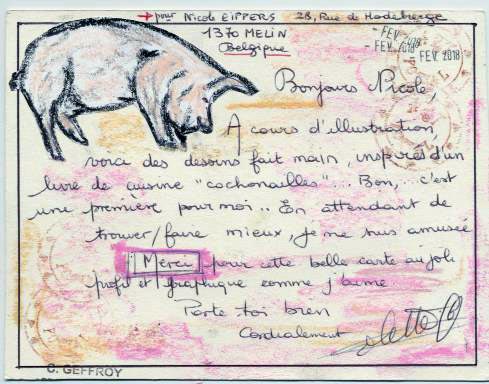 pour Nicole EIPPERS 28, Rue de Hodebeege
1370 MELIN
Belgique
FEV. 2018
FEV. 2018
FEV 2018
Bonjours Nicole,
A cours d'illustration,
voici des dessins fait main, inspirés d'un
livre de cuisine "cochonailles"... Bon,... c'est
une première pour moi.. En attendant de
trouver/faire mieux, je me suis amusée
Merci pour cette belle carte au joli
profil et graphique comme j'aime
Porte toi bien
Cordialement
C. GEFFROY